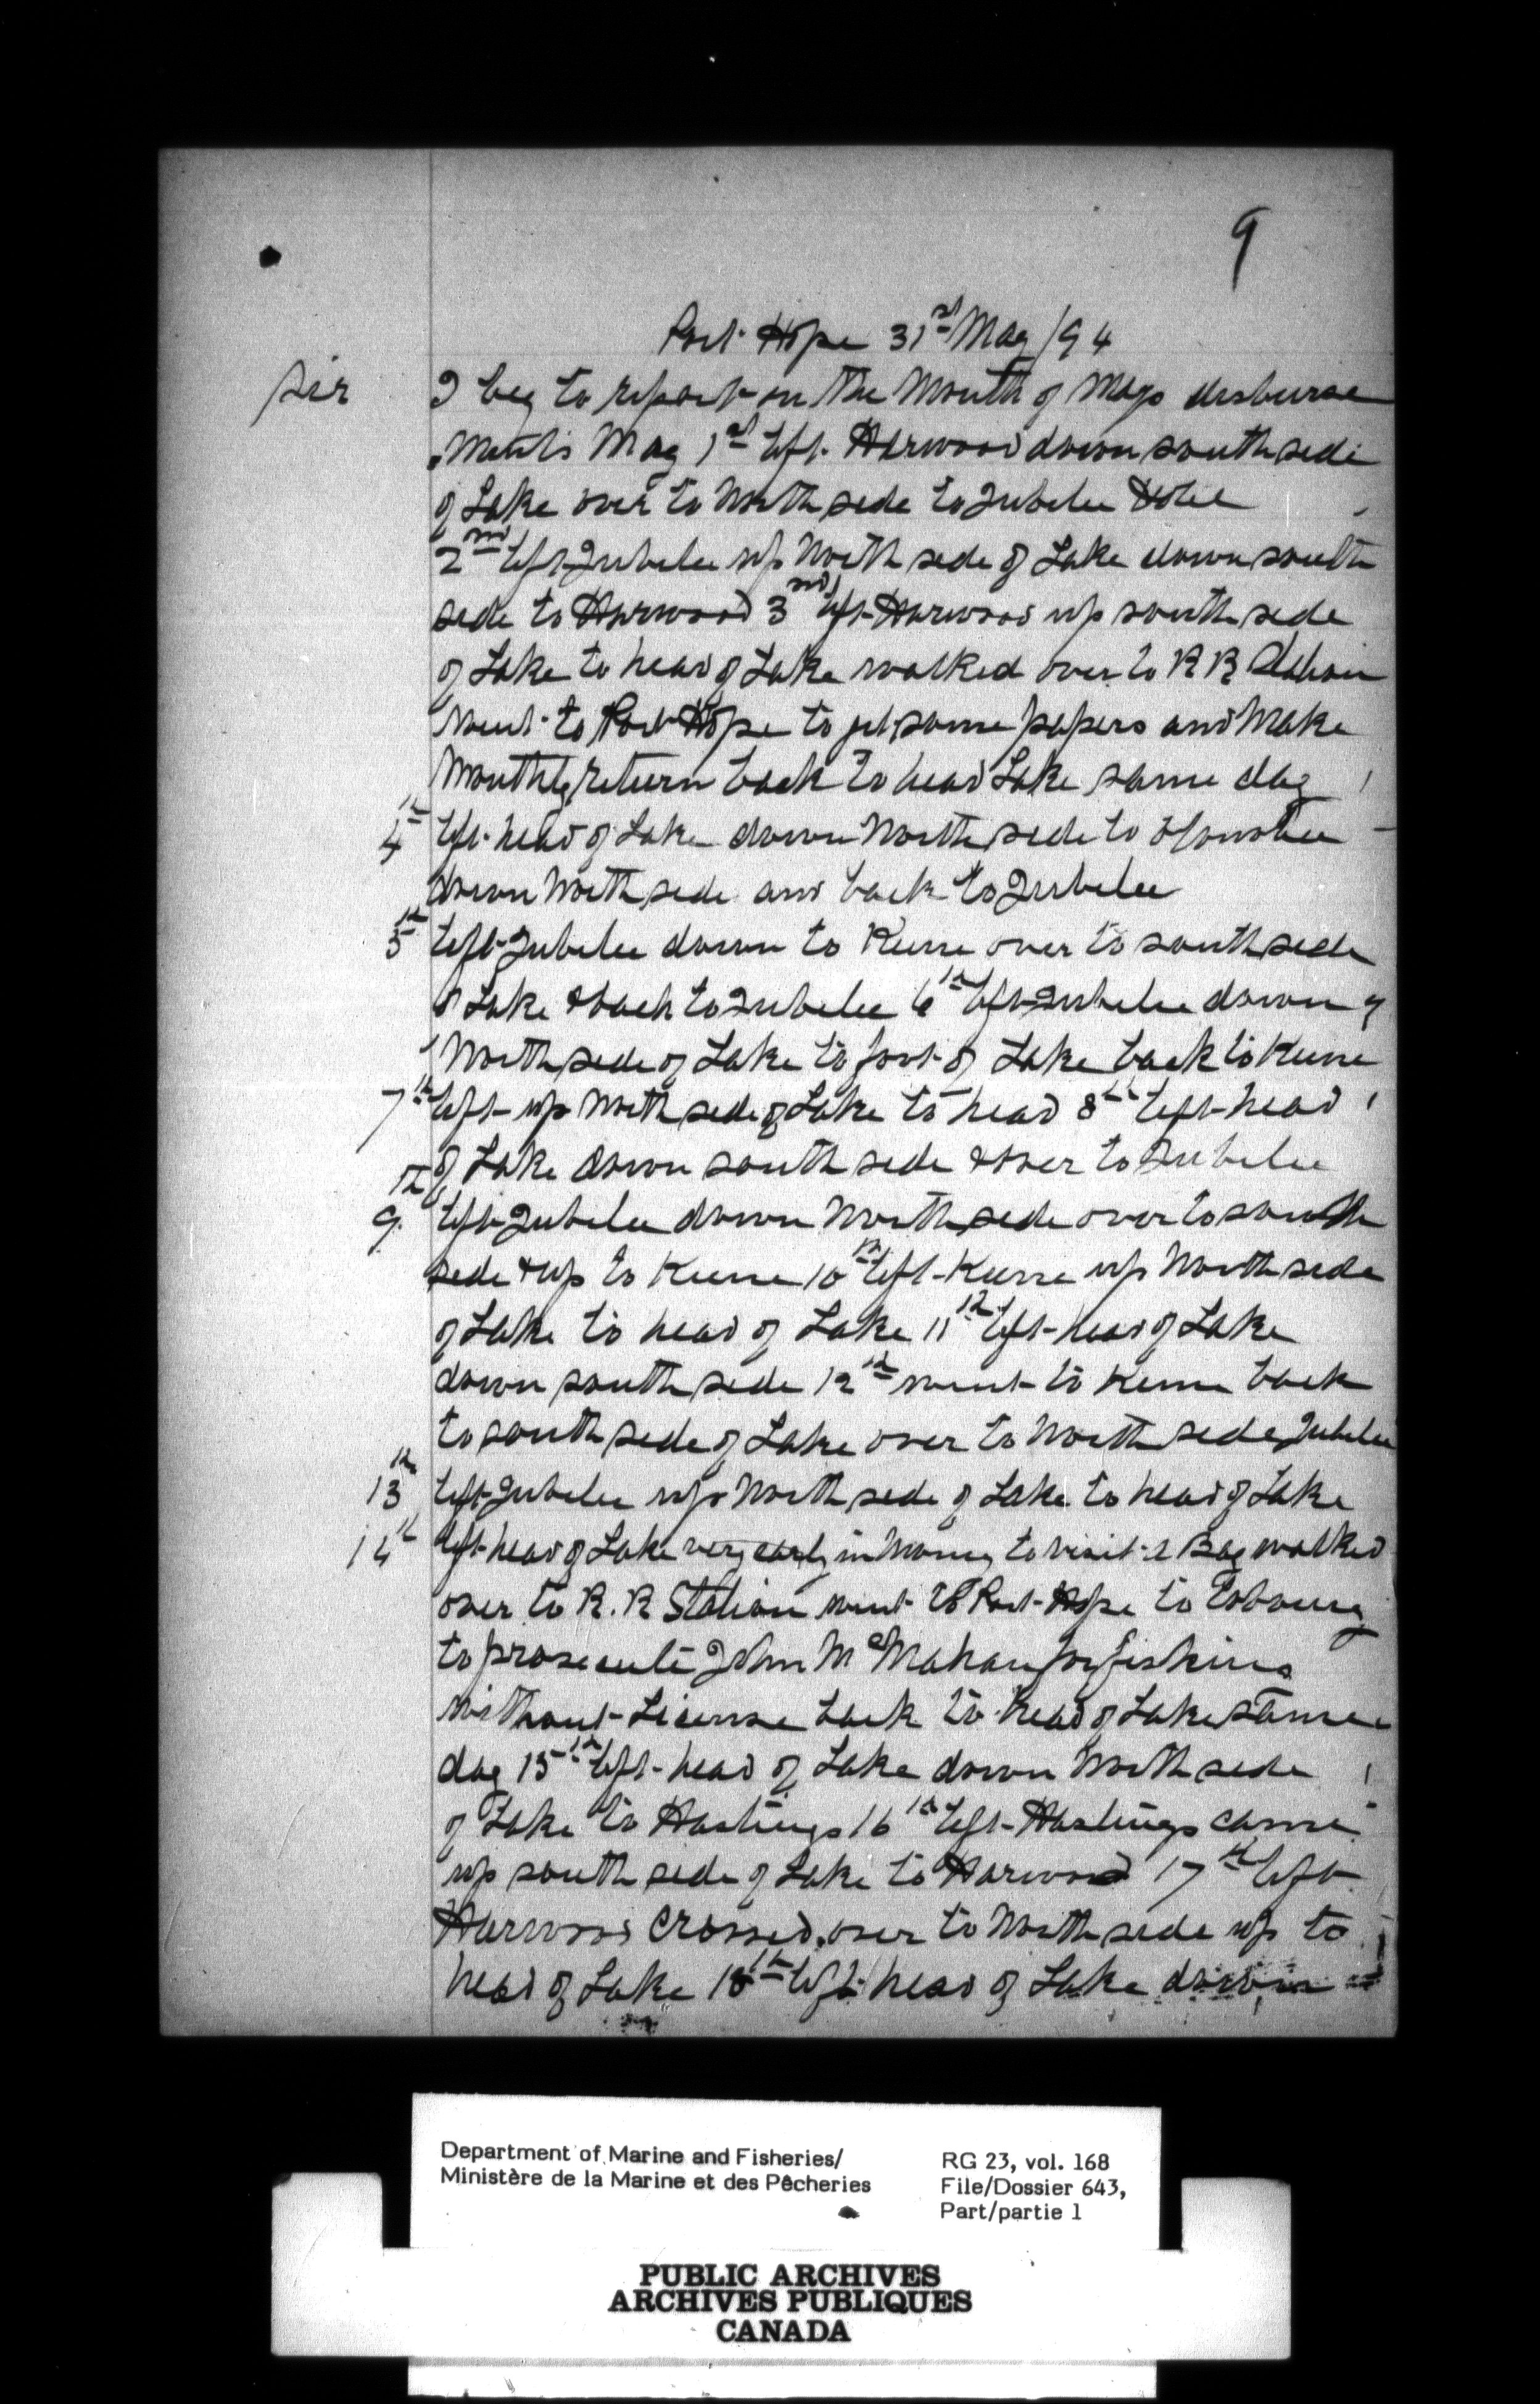 9
Port Hope 31st May /94
Sir I beg to report on the Month of Mays disburse
ments May 1st left Harwood down south side
of Lake over to North side to Jubelee Hotel
2nd left Jubelee up North side of Lake down south
side to Harwood 3rd left Harwood up south side
of Lake to head of Lake walked over to R R Station
went to Port Hope to get some papers and Make
Monthly return back to head Lake same day
4th left head of Lake down North side to Otonobee
down North side and back to Jubelee
5th left Jubelee down to Keene over to south side
of Lake & back to Jubelee 6th left Jubelee down
North side of Lake to foot of Lake back to Keene
7th left up North side of Lake to head 8th left head
of Lake down south side & over to Jubelee
9th left Jubelee down North side over to south
side & up to Keene 10th left Keene up North side
of Lake to head of Lake 11th left head of Lake
down south side 12th went to Keene back
to south side of Lake over to North side Jubelee
13th left Jubelee up North side of Lake to head of Lake
14th left head of Lake very early in Morning to visit Bay walked
over to R.R Station went to Port Hope to Cobourg
to prosecute John McMahan for fishing
without License back to head of Lake same
day 15th left head of Lake down North side
of Lake to Hastings 16th left Hastings came
up south side of Lake to Harwood 17th left
Harwood crossed over to North side up to
head of Lake 18th left head of Lake down
Department of Marine and Fisheries/
Ministère de la Marine et des Pêcheries
RG 23, vol. 168
File/Dossier 643,
Part/partie 1
PUBLIC ARCHIVES
ARCHIVES PUBLIQUES
CANADA